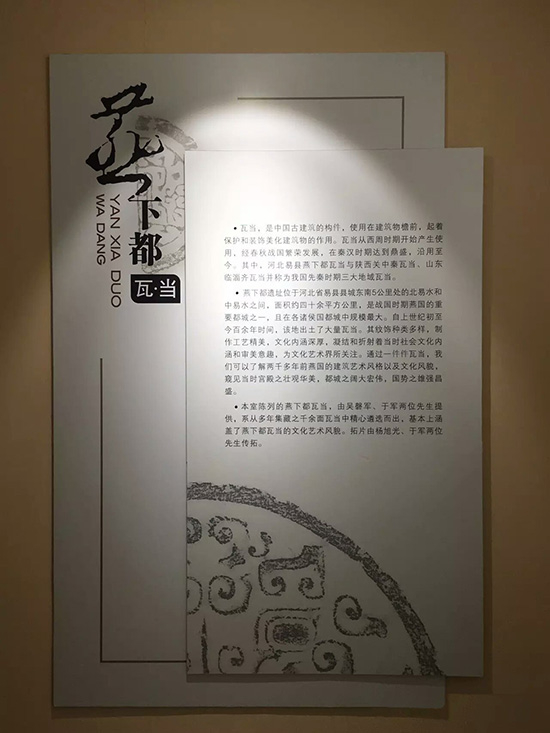 燕下都
瓦·当
YAN XIA DUO
WA DANG
•瓦当，是中国古建筑的构件，使用在建筑物檐前，起着
保护和装饰美化建筑物的作用。瓦当从西周时期开始产生使
用，经春秋战国繁荣发展，在秦汉时期达到鼎盛，沿用至
今。其中，河北易县燕下都瓦当与陕西关中秦瓦当、山东
临淄齐瓦当并称为我国先秦时期三大地域瓦当。
•燕下都遗址位于河北省易县县城东南5公里处的北易水和
中易水之间，面积约四十余平方公里，是战国时期燕国的重
要都城之一，且在各诸侯国都城中规模最大。自上世纪初至
今百余年时间，该地出土了大量瓦当。其纹饰种类多样，制
作工艺精美，文化内涵深厚，凝结和折射着当时社会文化内
涵和审美意趣，为文化艺术界所关注。通过一件件瓦当，我
们可以了解两千多年前燕国的建筑艺术风格以及文化风貌，
窥见当时宫殿之壮观华美，都城之阔大宏伟，国势之雄强昌
盛。
•本室陈列的燕下都瓦当，由吴磬军、于军两位先生提
供，系从多年集藏之千余面瓦当中精心遴选而出，基本上涵
盖了燕下都瓦当的文化艺术风貌。拓片由杨旭光、于军两位
先生传拓。